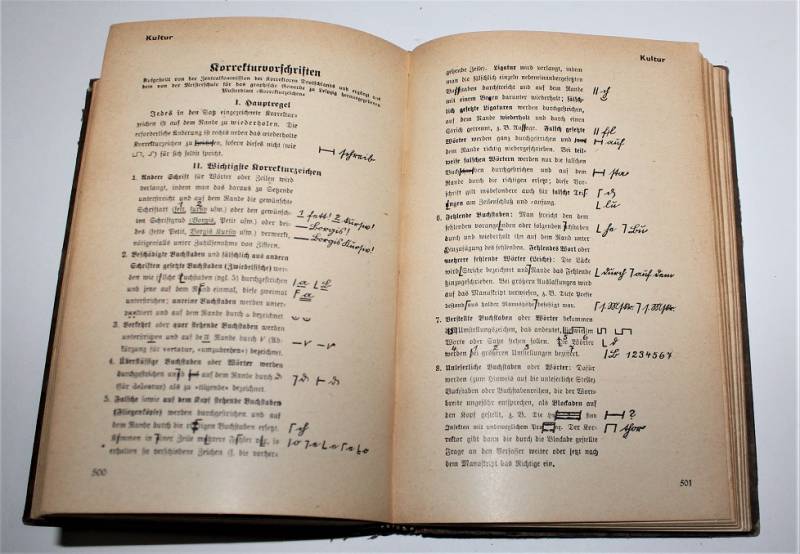 Kultur
Korrekturvorschriften
Festgestellt von der Zentralkommission der Korrektoren Deutschlands und ergänzt auf
den von der Meisterschule für das graphische Gewerbe zu Leipzig herausgegebenen
I. Hauptregel
Jedes in den Satz eingezeichnete Korrektur-
zeichen ist auf dem Rande zu wiederholen. Die
erforderliche Änderung ist rechts neben das wiederholte
Korrekturzeichen zu sofern dieses nicht (wie
für sich selbst spricht. schreib
II. Wichtigste Korrekturzeichen
1. Andere Schrift für Wörter oder Zeilen wird
verlangt, indem man das daraus zu Setzende
unterstreicht und auf dem Rande die gewünschte
Schriftart (fett, kursiv usw.) oder den gewünsch-
ten Schriftgrad (Borgis, Petit usw.) oder bei-
des (fette Petit, Borgis Kursiv usw.) vermerkt,
nötigenfalls unter Zuhilfenahme von Ziffern.
1 fett! 2 kursiv!
Borgis!
Borgis Kursiv!
2. Beschädigte Buchstaben und fälschlich aus andern
Schriften gesetzte Buchstaben (Zwiebelfische) wer-
den wie Buchstaben (vgl. 5) durchgestrichen
und jene auf dem Rand einmal, diese zweimal
unterstrichen; unreine Buchstaben werden unter-
und auf dem Rande durch bezeichnet
3. Verkehrt oder quer stehende Buchstaben werden
und auf dem Rande durch (Ab-
kürzung für vertatur, „umzudrehen“) bezeichnet.
4. Überflüssige Buchstaben oder Wörter werden
durchgestrichen und auf dem Rande durch
(für deleatur) als zu „tilgende“ bezeichnet.
5. Falsche sowie auf dem Kopf stehende Buchstaben
(Fliegenköpfe) werden durchgestrichen und auf
dem Rande durch die richtigen Buchstaben ersetzt.
Kommen in einer Zeile mehrere Fehler vor, so
erhalten sie verschiedene Zeichen (s. die vorher-
500
Kultur
gehende Zeile). Ligatur wird verlangt, indem
man die fälschlich einzeln nebeneinandergesetzten
Buchstaben durchstreicht und auf dem Rande
mit einem Bogen darunter wiederholt; fälsch-
lich gesetzte Ligaturen werden durchgestrichen,
auf dem Rande wiederholt und durch einen
Strich getrennt, z. B. Falsch gesetzte
Wörter werden ganz durchgestrichen und
dem Rande richtig wiederholt. Bei teil-
weise falschen Wörtern werden nur die falschen
durchgestrichen und auf dem
Rande durch die richtigen ersetzt; diese Vor-
schrift gilt insbesondere auch für falsche
am Zeilenschluß und -anfang.
ch
fl
auf
sta
6. Fehlende Buchstaben: Man streicht den dem
fehlenden vorangehenden oder folgenden
durch und wiederholt ihn auf dem Rand unter
Hinzufügung des fehlenden. Fehlendes Wort oder
mehrere fehlende Wörter (Leiche): Die Lücke
wird Striche bezeichnet und Rande das Fehlende
hinzugeschrieben. Bei größeren Auslassungen wird
auf das Manuskript verwiesen, z. B. Diese Presse
durch auf dem
7. Verstellte Buchstaben oder Wörter bekommen
Umstellungszeichen, das andeutet,
Worte oder Sätze stehen sollen. Die Wörter
werden bei größeren Umstellungen beziffert.
1 2 3 4 5 6 7
8. Unleserliche Buchstaben oder Wörter: Dafür
werden (zum Hinweis auf die unleserliche Stelle)
Buchstaben oder Buchstabenreihen, die der Wort-
breite ungefähr entsprechen, als Blockaden auf
den Kopf gestellt, z. B. Die sind
Insekten mit unbeweglichem Der Kor-
rektor gibt dann die durch die Blockade gestellte
Frage an den Verfasser weiter oder setzt nach
dem Manuskript das Richtige ein.
?
thor
501